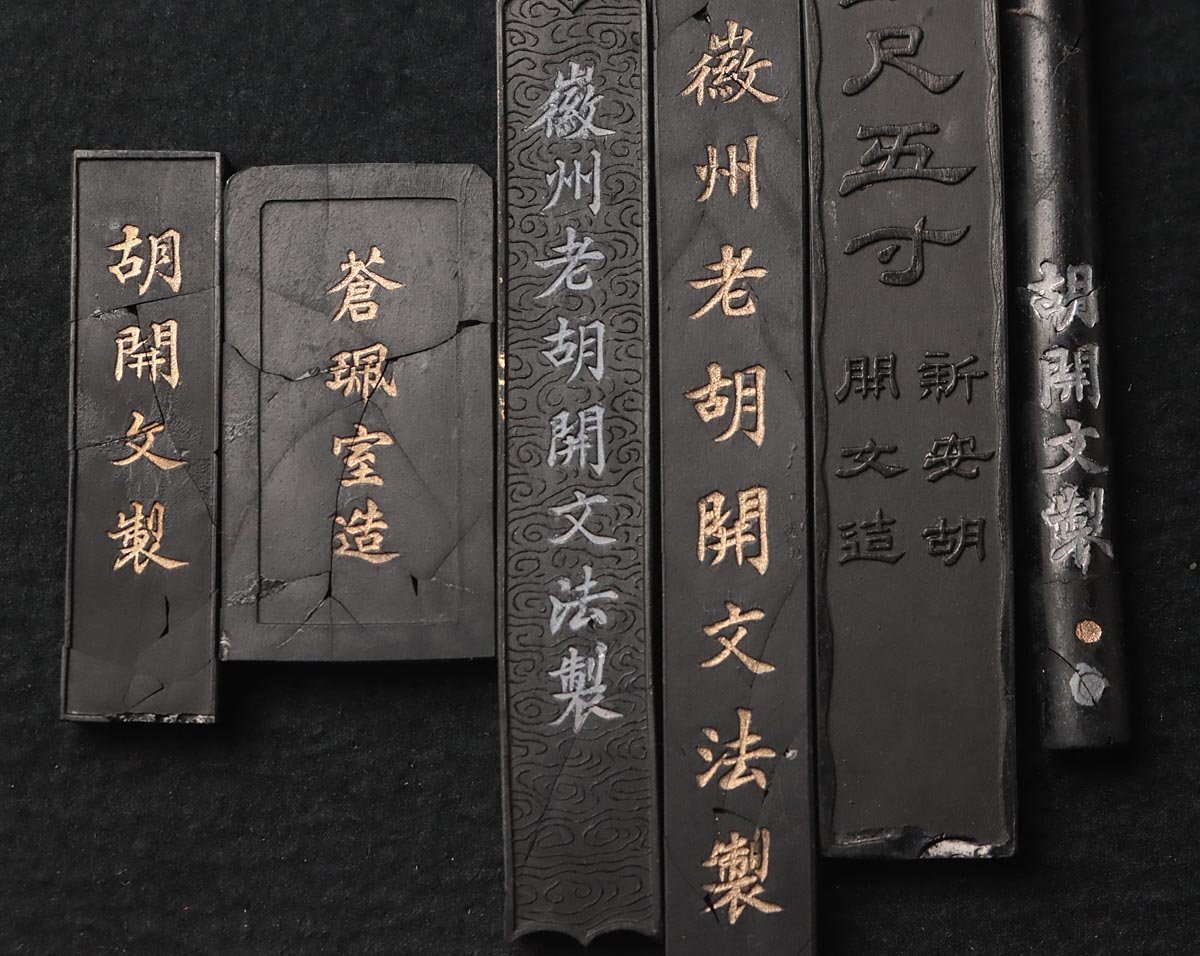 胡開文製
蒼珮室造
徽州老胡開文法製
徽州老胡開文法製
尺五寸
新安胡
開文造
胡開文製